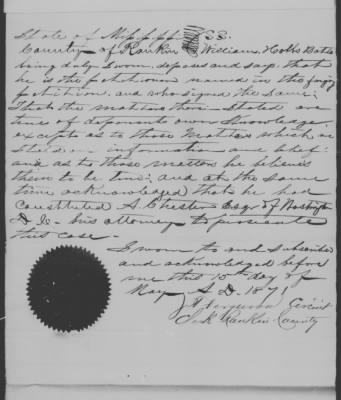 State of Mississippi } SS.
County of Rankin } William Hobbs
being duly Sworn, deposes and says, that
he is the petitioner named in the forgoing
petition, and who signed the same;
That the matters therein Stated are
true of deponents own Knowledge
excepts as to those Matters which are
stated on information and belief:
and as to those matters he believes
them to be true; and at the same
time acknowledged that he had
Constituted A Chester Esq. of Washington
D. C.- his attorney to prosecute
this case -
Sworn to and Subscribed
and acknowledged before
me this 10th day of
May A D. 1871
Ferguson Circuit
Clerk Rankin County